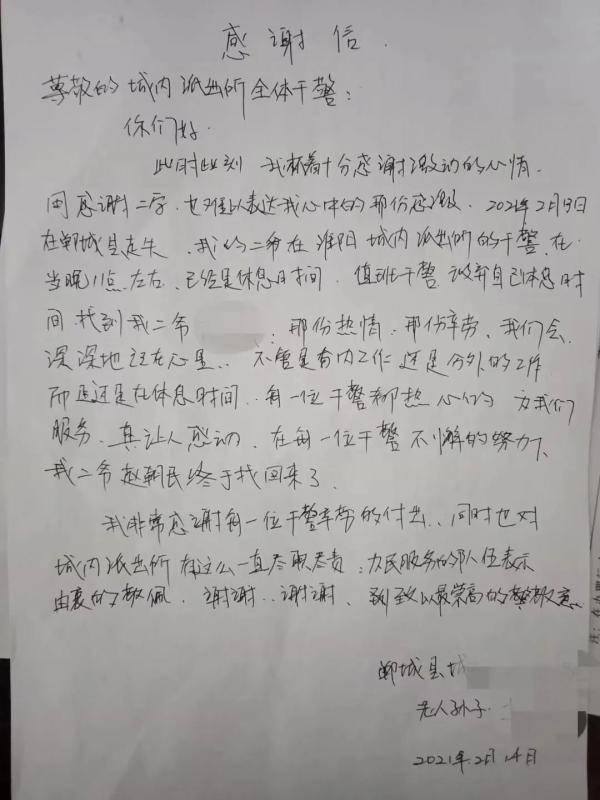 感谢信.
尊敬的城内派出所全体干警:
你们好.
此时此刻 我怀着十分感谢激动的心情.
用感谢二字.也难以表达我心中的那份感激. 2021年2月9日
在郸城县走失.我的二爷在淮阳城内派出所的干警.在
当晚11点左右.已经是休息时间.值班干警 放弃自己休息时
间 找到我二爷 : 那份热情:那份辛劳、我们会
深深地记在心里.. 不管是份内工作 还是分外的工作
而且还是在休息时间..每一位干警都热心的 为我们
服务.真让人感动.在每一位干警不懈的努力下、
我二爷赵朝民终于找回来了.
我非常感谢每一位干警辛劳的付出..同时也对
城内派出所 有这么一直尽职尽责:为民服务的队伍表示
由衷的敬佩. 谢谢..谢谢、 到致以最崇高的敬意
郸城县城
老人孙子.
2021年.2月14日